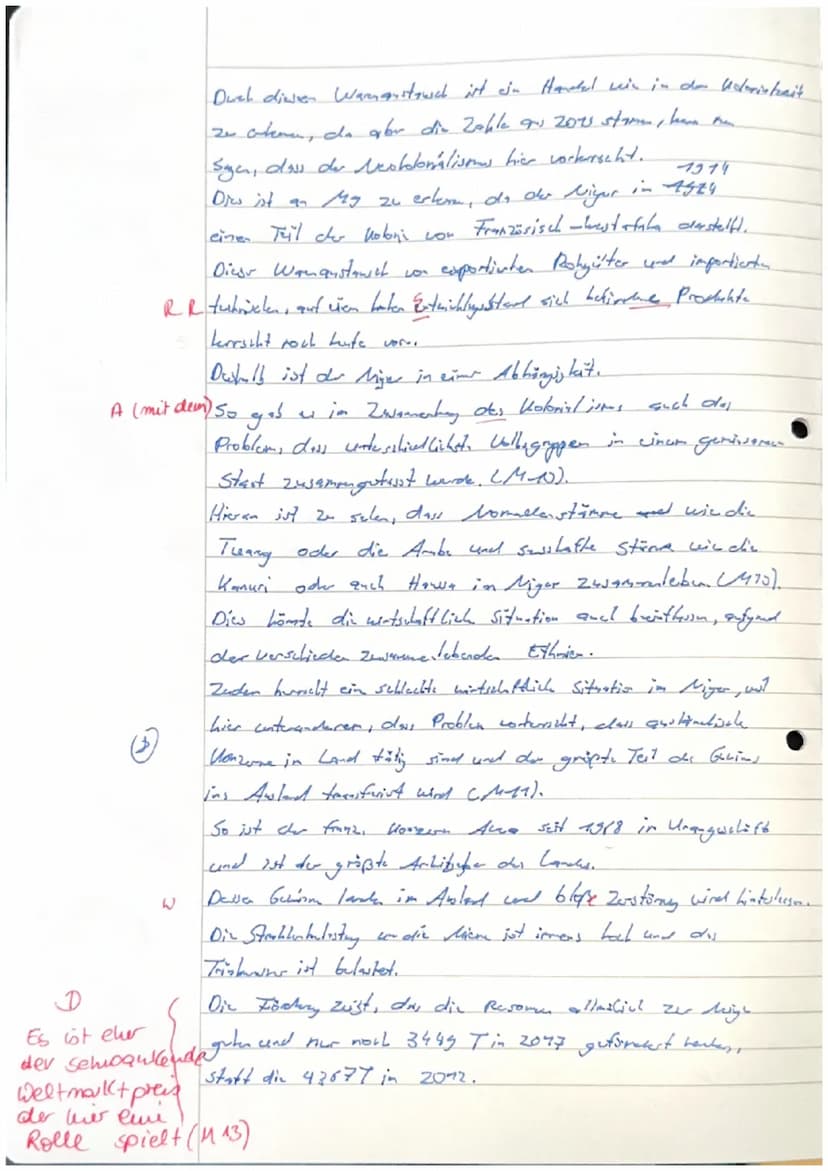 Durch diesen Warenaustausch ist ein Handel wie in der Kolonialzeit
zu erkennen, da aber die Zahlen aus 2015 stammen, kann man
sagen, dass der Neokolonialismus hier vorherrscht.
1914
Dies ist an M9 zu erkennen, da der Niger in 1924
einen Teil der Kolonie von Französisch-Westafrika darstellt.
Dieser Warenaustausch von exportierten Rohgüter und importierten
R R technischen, auf einen hohen Entwicklungsstand sich befindene Produkte
herrscht noch heute vor.
Deshalb ist der Niger in einer Abhängigkeit.
A (mit dem) So gab es im Zusammenhang des Kolonialismus auch das
Problem, dass unterschiedlichste Volksgruppen in einem gemeinsamen
Staat zusammengefasst wurde. (M10).
Hieran ist zu sehen, dass Nomadenstämme wie die
Tuareg oder die Araber und sesshafte Stämme wie die
Kanuri oder auch Hausa in Niger zusammenleben. (M10).
Dies könnte die wirtschaftliche Situation auch beeinflussen, aufgrund
der verschieden zusammenlebenden Ethnien.
Zudem herrscht ein schlechte wirtschaftliche Situation im Niger, weil
hier unteranderem, das Problem vorherrscht, dass ausländische
Konzerne in Land tätig sind und der größte Teil des Gewinns
ins Ausland transferiert wird (M11).
So ist der franz. Konzern Areva seit 1968 in Urangeschäft
und ist der größte Arbeitgeber des Landes.
W Dessen Gewinn landen im Ausland und bloße Zerstörung wird hinterlassen.
Die Strahlenbelastung um die Mine ist immens hoch und das
Trinkwasser ist belastet.
Die Förderung zeigt, das die Resourcen allmählich zur Neige
gehen und nur noch 3449 T in 2017 gefördert werden,
statt die 4367T in 2012.
D
Es ist eher
der schwankende
Weltmarktpreis
der hier eine
Rolle spielt (M 13)